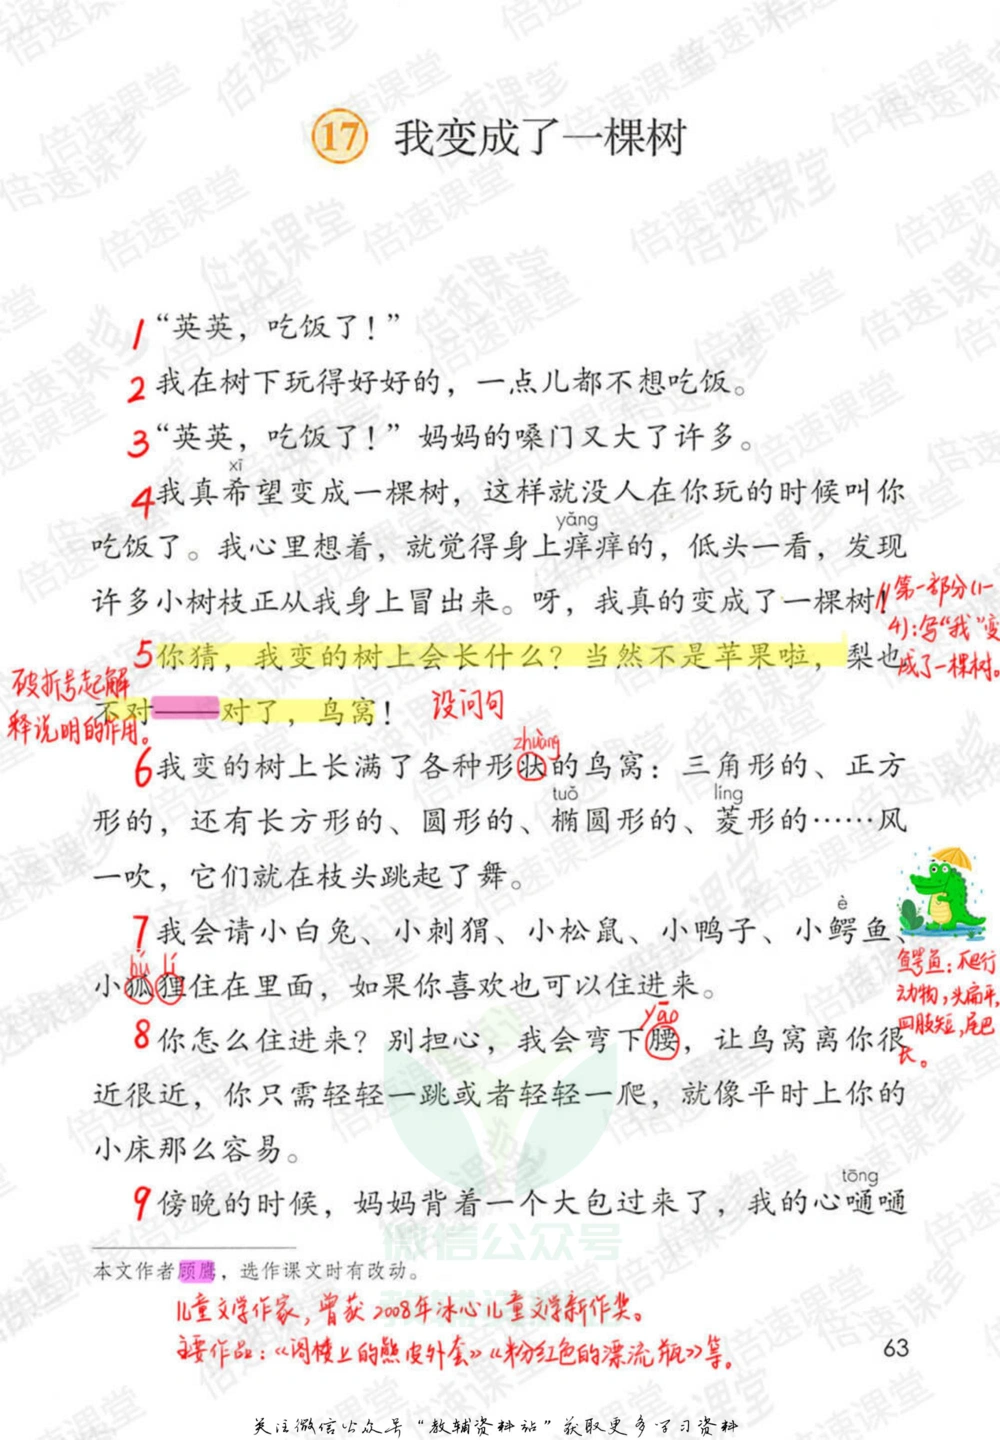 17 我变成了一棵树
1 “英英，吃饭了！”
2 我在树下玩得好好的，一点儿都不想吃饭。
3 “英英，吃饭了！”妈妈的嗓门又大了许多。
xī
4 我真希望变成一棵树，这样就没人在你玩的时候叫你
yǎng
吃饭了。我心里想着，就觉得身上痒痒的，低头一看，发现
许多小树枝正从我身上冒出来。呀，我真的变成了一棵树！
// 第一部分(1-
4)：写“我”变
成了一棵树。
5 你猜，我变的树上会长什么？当然不是苹果啦，梨也
不对——对了，鸟窝！
破折号起解
释说明的作用。
设问句
zhuàng
6 我变的树上长满了各种形状的鸟窝：三角形的、正方
tuǒ líng
形的，还有长方形的、圆形的、椭圆形的、菱形的……风
一吹，它们就在枝头跳起了舞。
è
7 我会请小白兔、小刺猬、小松鼠、小鸭子、小鳄鱼、
hú li
小狐狸住在里面，如果你喜欢也可以住进来。
鳄鱼：爬行
动物，头扁平，
四肢短，尾巴
长。
yāo
8 你怎么住进来？别担心，我会弯下腰，让鸟窝离你很
近很近，你只需轻轻一跳或者轻轻一爬，就像平时上你的
小床那么容易。
tōng
9 傍晚的时候，妈妈背着一个大包过来了，我的心嗵嗵
本文作者顾鹰，选作课文时有改动。
儿童文学作家，曾获2008年冰心儿童文学新作奖。
主要作品：《阁楼上的熊皮外套》《粉红色的漂流瓶》等。
63
关注微信公众号“教辅资料站”获取更多学习资料
倍速课堂
微信公众号
教辅资料站